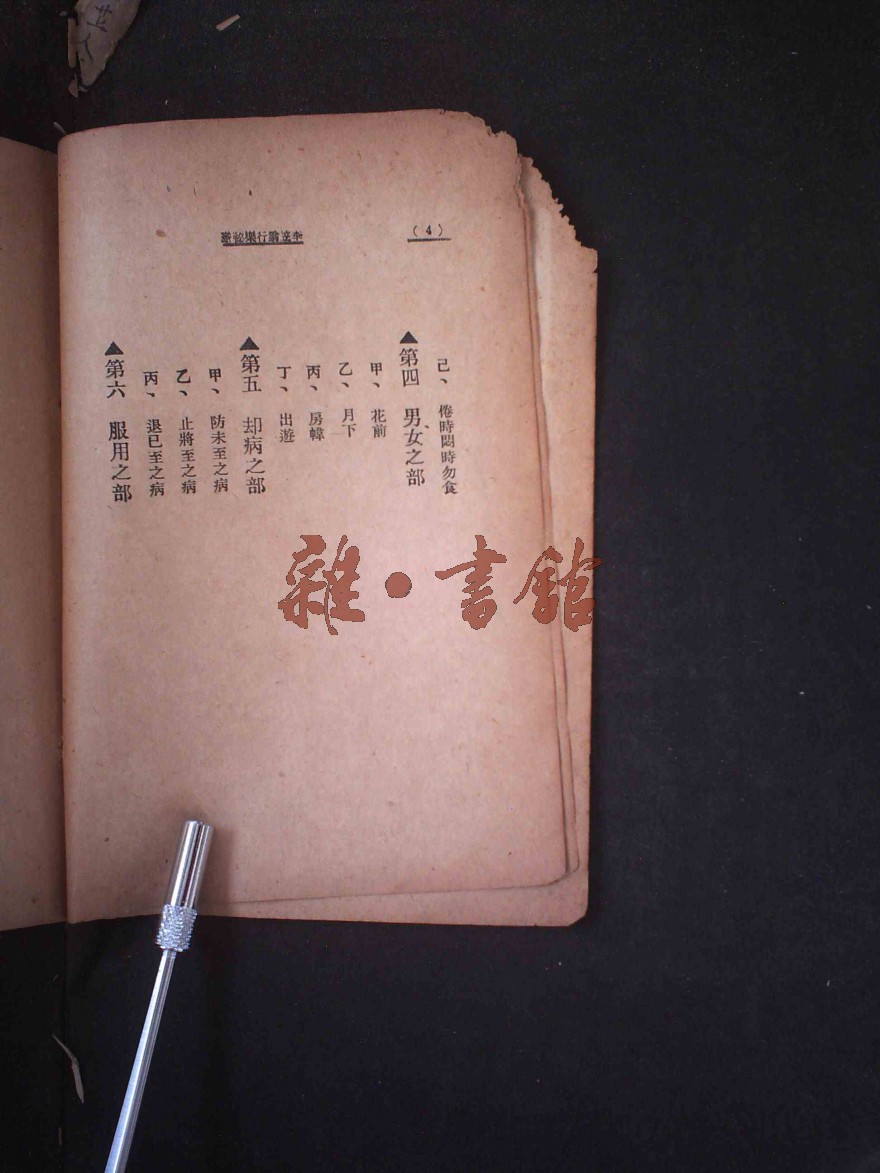 (4)
李笠翁行樂祕
己、倦時悶時勿食
▲第四 男女之部
甲、花前
乙、月下
丙、房幃
丁、出遊
▲第五 却病之部
甲、防未至之病
乙、止將至之病
丙、退已至之病
▲第六 服用之部
雜·書館